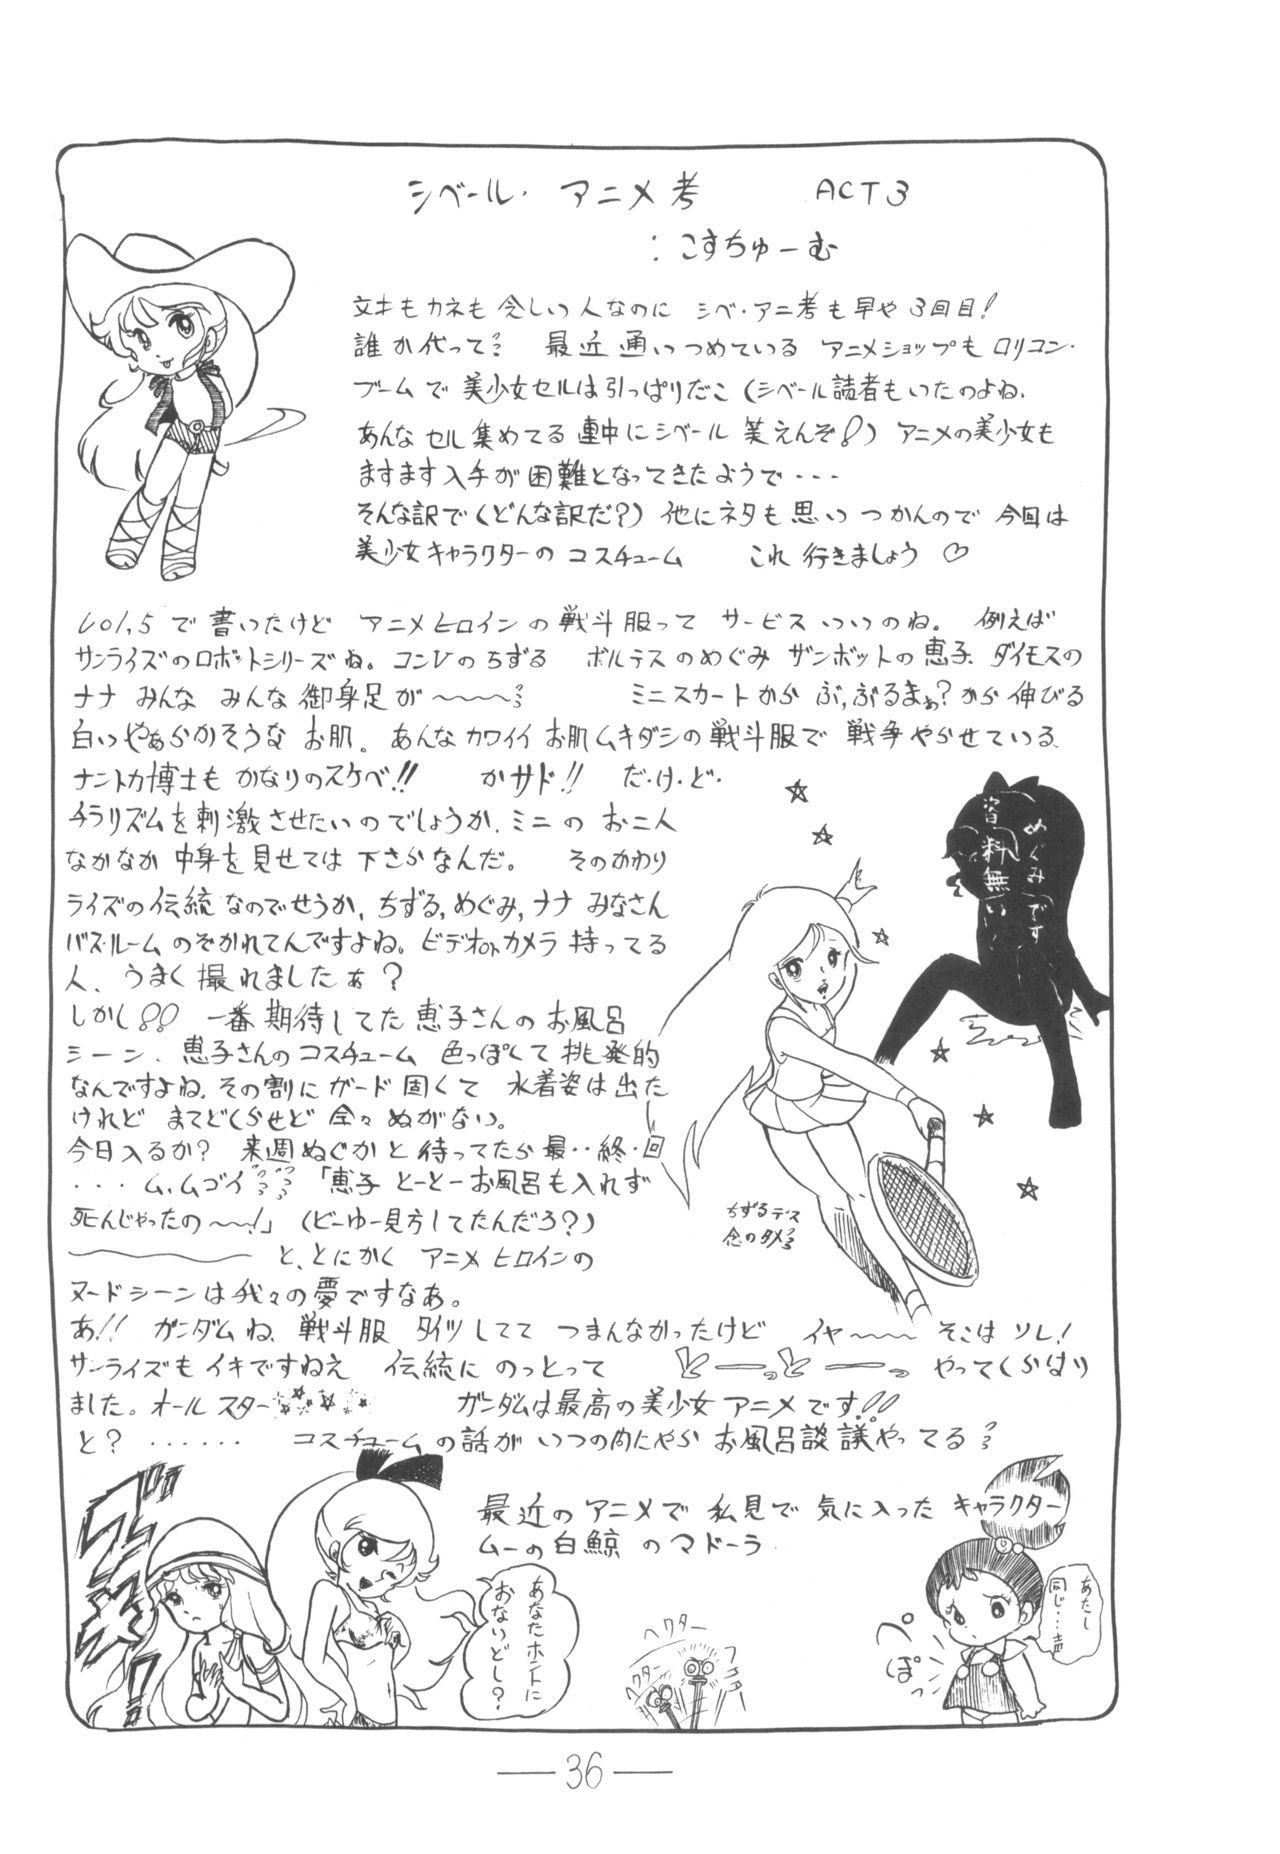 シベール・アニメ考 ACT3
:こすちゅーむ
文才もカネも乏しい人なのに シベ・アニ考も早や3回目!
誰か代って 最近通いつめている アニメショップも ロリコン・
ブームで 美少女セルは引っぱりだこ (シベール読者もいたのよね、
あんな セル集めてる 連中にシベール 笑えんぞ!) アニメの美少女も
ますます入手が 困難となってきたようで・・・
そんな訳で(どんな訳だ?) 他にネタも思い つかんので 今回は
美少女キャラクターの コスチューム これ 行きましょう ♡
Vol.5で書いたけど アニメヒロインの戦斗服って サービス いいのね。 例えば
サンライズのロボットシリーズね。コンVのちずる ボルテスのめぐみ ザンボットの恵子 ダイモスの
ナナ みんな みんな御身足が〜〜〜 ミニスカートから ぶ,ぶるまぁ?から伸びる
白いやぁらかそうな お肌。 あんなカワイイ お肌ムキダシの戦斗服で 戦争やらせている、
ナントカ博士も かなりのスケベ!! かサド!! だ・け・ど・
チラリズムを刺激させたいのでしょうか、ミニの お二人
なかなか 中身を見せては 下さらなんだ。 そのかわり
ライズの伝統なのでせうか, ちずる,めぐみ,ナナ みなさん
バス・ルームのぞかれてんですよね。ビデオorカメラ 持ってる
人、うまく 撮れましたぁ?
しかし!! 一番期待してた 恵子さんのお風呂
シーン、恵子さんのコスチューム 色っぽくて挑発的
なんですよね、その割に ガード固くて 水着姿は出た
けれど まてどくらせど 全々ぬがない。
今日入るか? 来週ぬぐかと待ってたら 最・・終・回
・・・ム、ムゴイ 「恵子 とーとーお風呂も入れず
死んじゃったの〜〜!」(どーゆー見方してたんだろ?)
と、とにかく アニメヒロインの
ヌードシーンは我々の夢ですなあ。
あ!! ガンダムね、戦斗服 タイツしてて つまんなかったけど イヤ〜〜〜 そこは ソレ!
サンライズも イキですねえ 伝統に のっとって どーっどーっ やってくらはり
ました。オールスター ガンダムは最高の美少女アニメです!!
と? ‥‥‥ コスチュームの話が いつの間にやら お風呂談議やってる
最近のアニメで 私見で 気に入った キャラクター
ムーの白鯨 の マドーラ
めぐみです
資料無い
ちずるデス
念のタメ
あなたホントに
おないどし?
ヘクター
ヘクター
ぺ
ぽっ
あたし
同じ‥
36